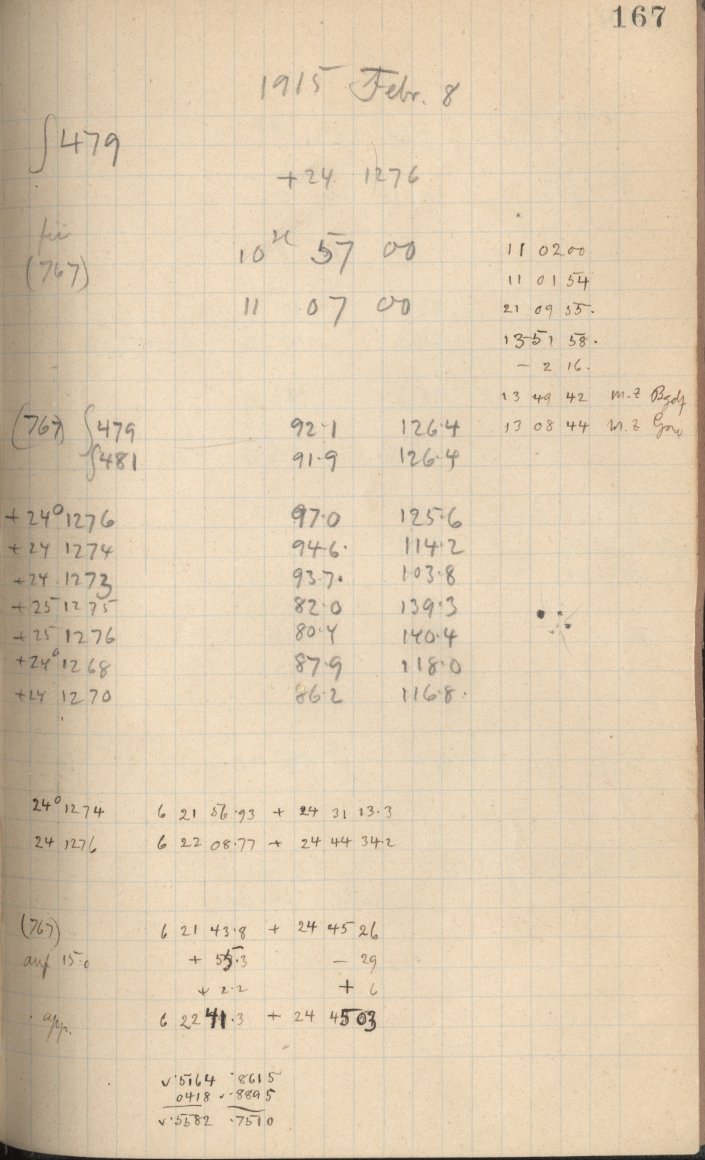 167
1915 Febr. 8
∫479
+24 1276
für
(767)
10 57 00
11 07 00
11 02 00
11 01 54
21 09 55.
13 51 58.
- 2 16.
13 49 42 m. Z Bgdf
13 08 44 m. Z Grw
(767) ∫479 92.1 126.4
∫481 91.9 126.4
+24° 1276 97.0 125.6
+24 1274 94.6. 114.2
+24 1273 93.7. 103.8
+25 1275 82.0 139.3
+25 1276 80.4 140.4
+24° 1268 87.9 118.0
+24 1270 86.2 116.8.
24° 1274 6 21 56.93 + 24 31 13.3
24 1276 6 22 08.77 + 24 44 34.2
(767) 6 21 43.8 + 24 45 26
auf 15.0 + 55.3 - 29
+ 2.2 + 6
app. 6 22 41.3 + 24 45 03
v.5164 .8615
0418 v.8895
v.5582 .7510